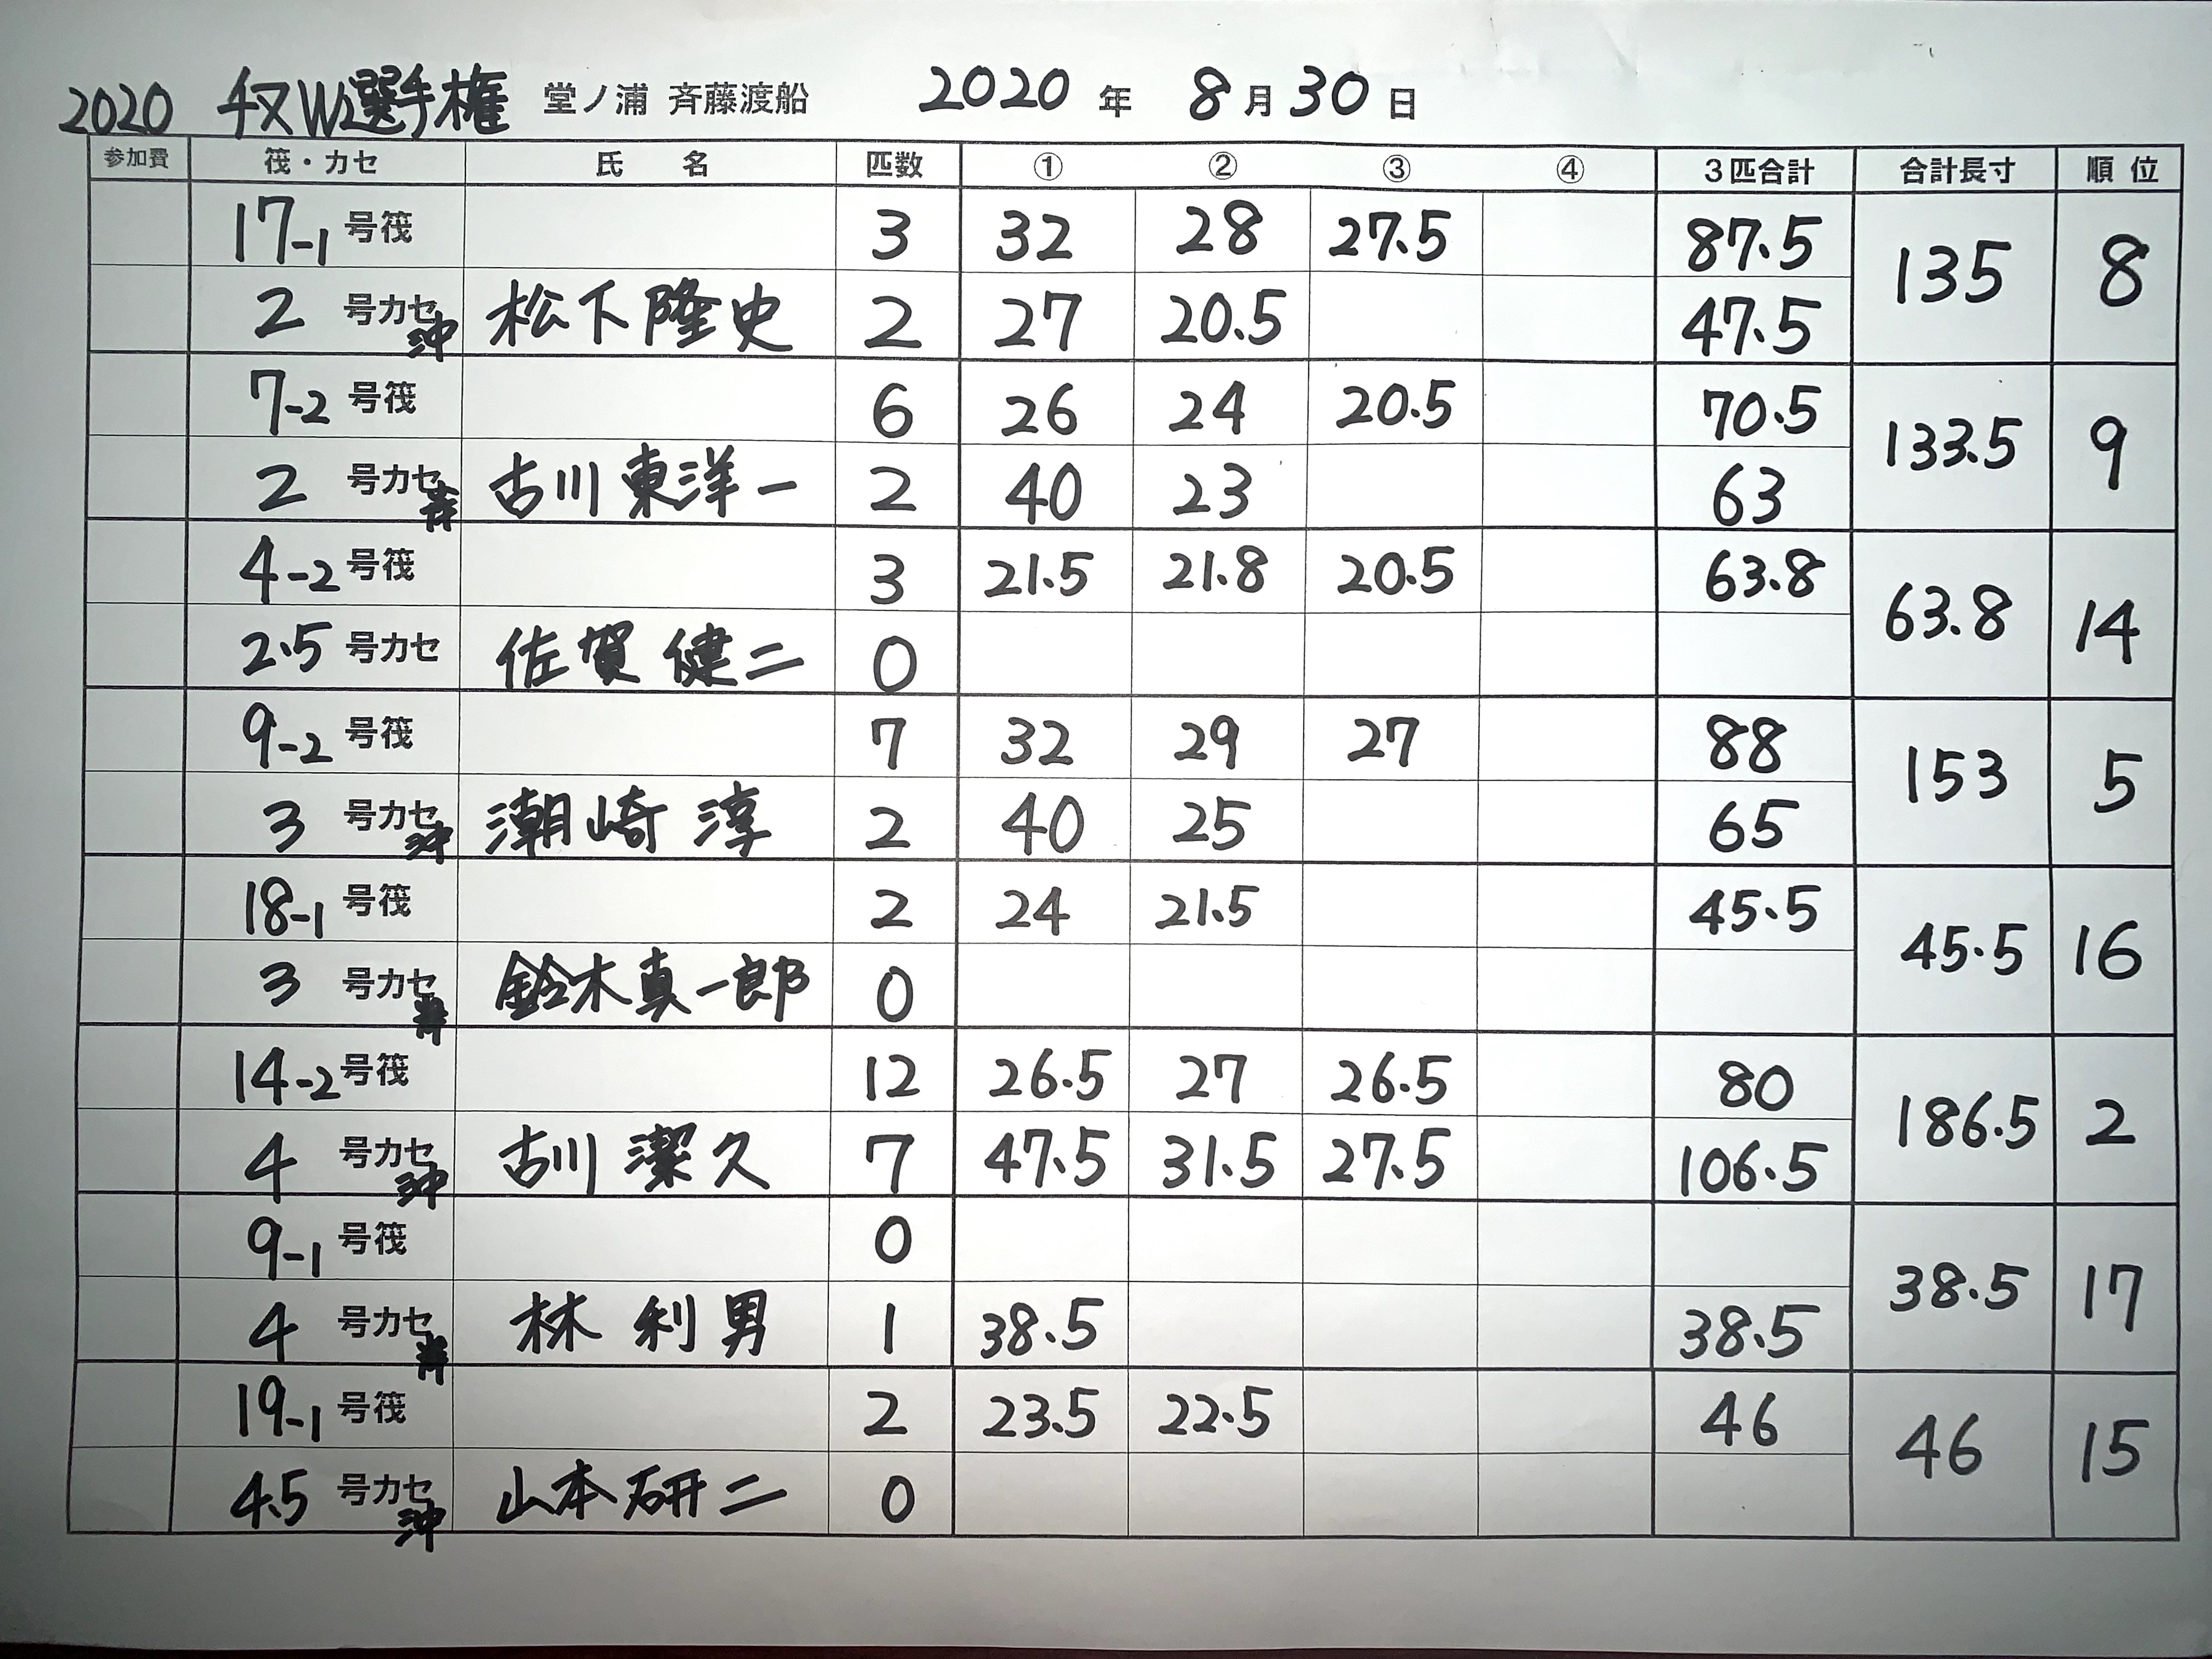 2020 チヌW選手権 堂ノ浦 斉藤渡船 2020 年 8 月 30 日
参加費 筏・カセ 氏 名 匹数 ① ② ③ ④ 3匹合計 合計長寸 順 位
17-1 号筏 3 32 28 27.5 87.5 135 8
2 号カセ 沖 松下隆史 2 27 20.5 47.5
7-2 号筏 6 26 24 20.5 70.5 133.5 9
2 号カセ 古川東洋一 2 40 23 63
4-2 号筏 3 21.5 21.8 20.5 63.8 63.8 14
2.5 号カセ 佐賀健二 0
9-2 号筏 7 32 29 27 88 153 5
3 号カセ 沖 潮崎淳 2 40 25 65
18-1 号筏 2 24 21.5 45.5 45.5 16
3 号カセ 鈴木真一郎 0
14-2 号筏 12 26.5 27 26.5 80 186.5 2
4 号カセ 沖 古川潔久 7 47.5 31.5 27.5 106.5
9-1 号筏 0 38.5 17
4 号カセ 林利男 1 38.5 38.5
19-1 号筏 2 23.5 22.5 46 46 15
4.5 号カセ 沖 山本研二 0